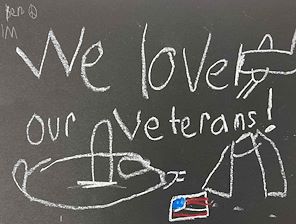 We love
our veterans!